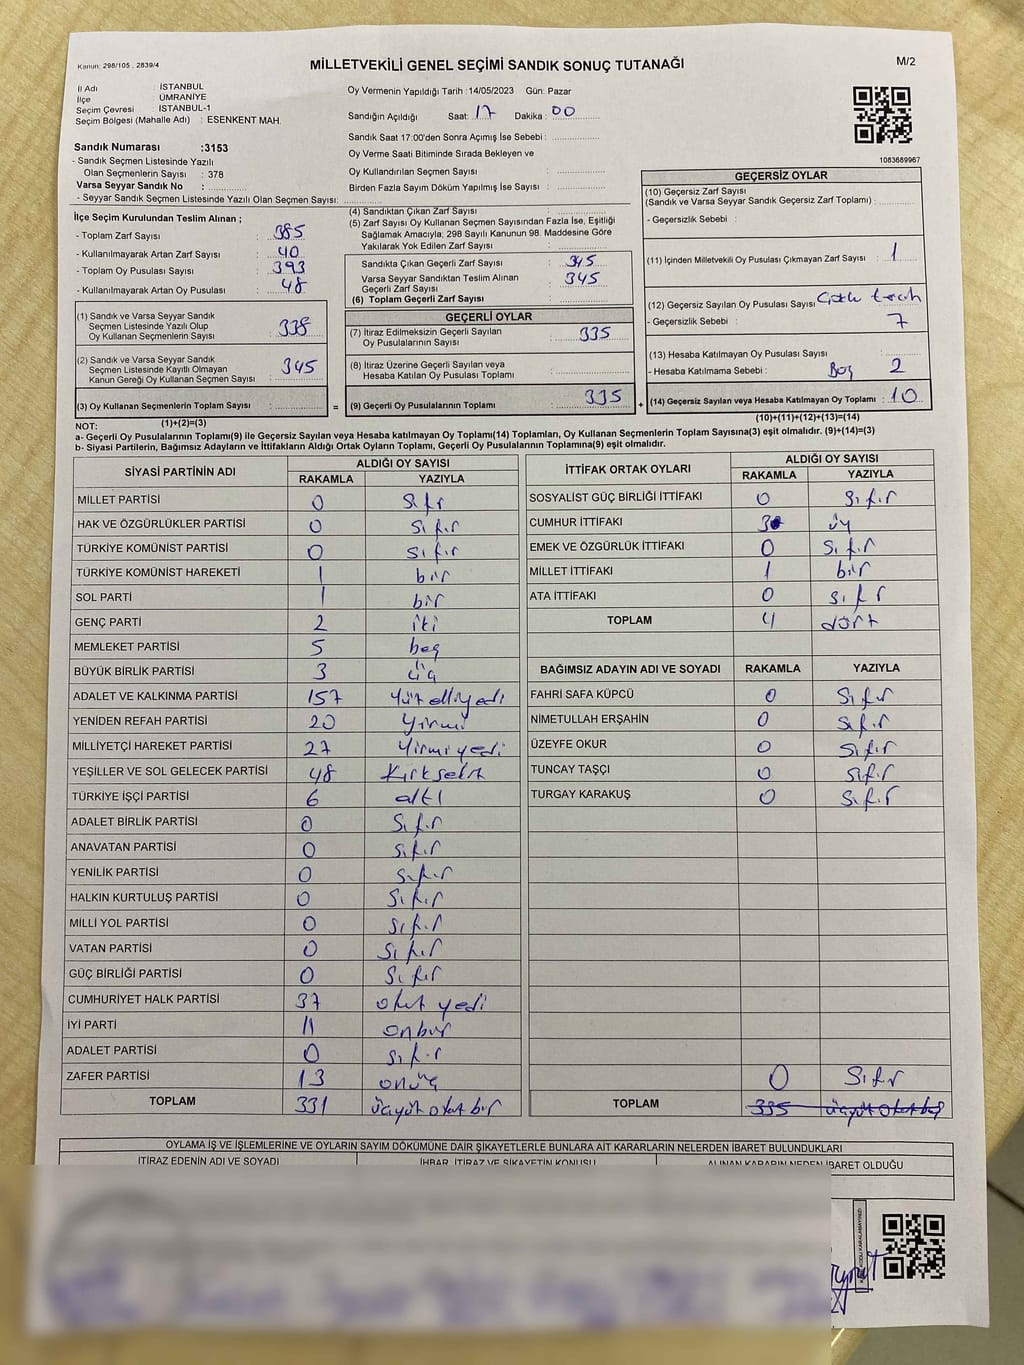 Kanun: 298/105 , 2839/4
MİLLETVEKİLİ GENEL SEÇİMİ SANDIK SONUÇ TUTANAĞI
M/2
İl Adı İSTANBUL
İlçe ÜMRANİYE
Seçim Çevresi : İSTANBUL-1
Seçim Bölgesi (Mahalle Adı) : ESENKENT MAH.
Oy Vermenin Yapıldığı Tarih : 14/05/2023 Gün: Pazar
Sandığın Açıldığı Saat: 17 Dakika : 00
Sandık Saat 17:00'den Sonra Açımış İse Sebebi :
Oy Verme Saati Bitiminde Sırada Bekleyen ve
Oy Kullandırılan Seçmen Sayısı :
Birden Fazla Sayım Döküm Yapılmış İse Sayısı :
1083689967
Sandık Numarası :3153
- Sandık Seçmen Listesinde Yazılı
Olan Seçmenlerin Sayısı : 378
Varsa Seyyar Sandık No :
- Seyyar Sandık Seçmen Listesinde Yazılı Olan Seçmen Sayısı:
İlçe Seçim Kurulundan Teslim Alınan ;
- Toplam Zarf Sayısı : 385
- Kullanılmayarak Artan Zarf Sayısı : 40
- Toplam Oy Pusulası Sayısı : 393
- Kullanılmayarak Artan Oy Pusulası : 48
(1) Sandık ve Varsa Seyyar Sandık
Seçmen Listesinde Yazılı Olup
Oy Kullanan Seçmenlerin Sayısı : 338
(2) Sandık ve Varsa Seyyar Sandık
Seçmen Listesinde Kayıtlı Olmayan
Kanun Gereği Oy Kullanan Seçmen Sayısı : 345
(3) Oy Kullanan Seçmenlerin Toplam Sayısı :
(1)+(2)=(3)
(4) Sandıktan Çıkan Zarf Sayısı :
(5) Zarf Sayısı Oy Kullanan Seçmen Sayısından Fazla İse, Eşitliği
Sağlamak Amacıyla; 298 Sayılı Kanunun 98. Maddesine Göre
Yakılarak Yok Edilen Zarf Sayısı :
Sandıkta Çıkan Geçerli Zarf Sayısı : 345
Varsa Seyyar Sandıktan Teslim Alınan
Geçerli Zarf Sayısı : 345
(6) Toplam Geçerli Zarf Sayısı :
GEÇERLİ OYLAR
(7) İtiraz Edilmeksizin Geçerli Sayılan
Oy Pusulalarının Sayısı : 335
(8) İtiraz Üzerine Geçerli Sayılan veya
Hesaba Katılan Oy Pusulası Toplamı :
= (9) Geçerli Oy Pusulalarının Toplamı : 335 +
GEÇERSİZ OYLAR
(10) Geçersiz Zarf Sayısı
(Sandık ve Varsa Seyyar Sandık Geçersiz Zarf Toplamı) :
- Geçersizlik Sebebi :
(11) İçinden Milletvekili Oy Pusulası Çıkmayan Zarf Sayısı : 1
(12) Geçersiz Sayılan Oy Pusulası Sayısı
- Geçersizlik Sebebi : 7
(13) Hesaba Katılmayan Oy Pusulası Sayısı :
- Hesaba Katılmama Sebebi : Boş 2
(14) Geçersiz Sayılan veya Hesaba Katılmayan Oy Toplamı : 10
(10)+(11)+(12)+(13)=(14)
NOT:
a- Geçerli Oy Pusulalarının Toplamı(9) ile Geçersiz Sayılan veya Hesaba katılmayan Oy Toplamı(14) Toplamları, Oy Kullanan Seçmenlerin Toplam Sayısına(3) eşit olmalıdır. (9)+(14)=(3)
b- Siyasi Partilerin, Bağımsız Adayların ve İttifakların Aldığı Ortak Oyların Toplamı, Geçerli Oy Pusulalarının Toplamına(9) eşit olmalıdır.
SİYASİ PARTİNİN ADI
ALDIĞI OY SAYISI
RAKAMLA YAZIYLA
MİLLET PARTİSİ 0 Sıfır
HAK VE ÖZGÜRLÜKLER PARTİSİ 0 Sıfır
TÜRKİYE KOMÜNİST PARTİSİ 0 Sıfır
TÜRKİYE KOMÜNİST HAREKETİ 1 bir
SOL PARTİ 1 bir
GENÇ PARTİ 2 iki
MEMLEKET PARTİSİ 5 beş
BÜYÜK BİRLİK PARTİSİ 3 üç
ADALET VE KALKINMA PARTİSİ 157 Yüz elliyedi
YENİDEN REFAH PARTİSİ 20 Yirmi
MİLLİYETÇİ HAREKET PARTİSİ 27 Yirmiyedi
YEŞİLLER VE SOL GELECEK PARTİSİ 48 Kırksekiz
TÜRKİYE İŞÇİ PARTİSİ 6 altı
ADALET BİRLİK PARTİSİ 0 Sıfır
ANAVATAN PARTİSİ 0 Sıfır
YENİLİK PARTİSİ 0 Sıfır
HALKIN KURTULUŞ PARTİSİ 0 Sıfır
MİLLİ YOL PARTİSİ 0 Sıfır
VATAN PARTİSİ 0 Sıfır
GÜÇ BİRLİĞİ PARTİSİ 0 Sıfır
CUMHURİYET HALK PARTİSİ 37 otuz yedi
İYİ PARTİ 11 onbir
ADALET PARTİSİ 0 Sıfır
ZAFER PARTİSİ 13 onüç
TOPLAM 331 üçyüz otuz bir
İTTİFAK ORTAK OYLARI
ALDIĞI OY SAYISI
RAKAMLA YAZIYLA
SOSYALİST GÜÇ BİRLİĞİ İTTİFAKI 0 Sıfır
CUMHUR İTTİFAKI 3 üç
EMEK VE ÖZGÜRLÜK İTTİFAKI 0 Sıfır
MİLLET İTTİFAKI 1 bir
ATA İTTİFAKI 0 Sıfır
TOPLAM 4 dört
BAĞIMSIZ ADAYIN ADI VE SOYADI RAKAMLA YAZIYLA
FAHRİ SAFA KÜPCÜ 0 Sıfır
NİMETULLAH ERŞAHİN 0 Sıfır
ÜZEYFE OKUR 0 Sıfır
TUNCAY TAŞÇI 0 Sıfır
TURGAY KARAKUŞ 0 Sıfır
0 Sıfır
TOPLAM 335 üçyüz otuz beş
OYLAMA İŞ VE İŞLEMLERİNE VE OYLARIN SAYIM DÖKÜMÜNE DAİR ŞİKAYETLERLE BUNLARA AİT KARARLARIN NELERDEN İBARET BULUNDUKLARI
İTİRAZ EDENİN ADI VE SOYADI İHBAR, İTİRAZ VE ŞİKAYETİN KONUSU ALINAN KARARIN NEDEN İBARET OLDUĞU